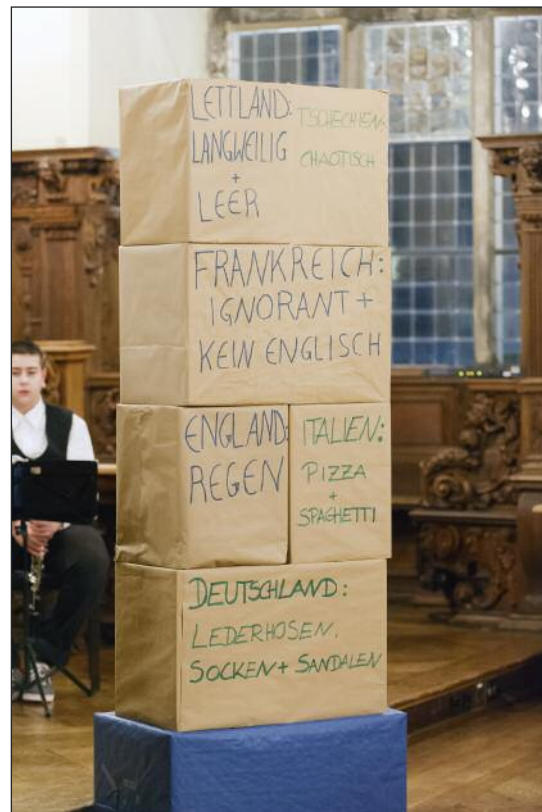 LETTLAND:
LANGWEILIG
+
LEER
TSCHECHIEN:
CHAOTISCH
FRANKREICH:
IGNORANT +
KEIN ENGLISCH
ENGLAND:
REGEN
ITALIEN:
PIZZA
+
SPAGHETTI
DEUTSCHLAND:
LEDERHOSEN,
SOCKEN + SANDALEN